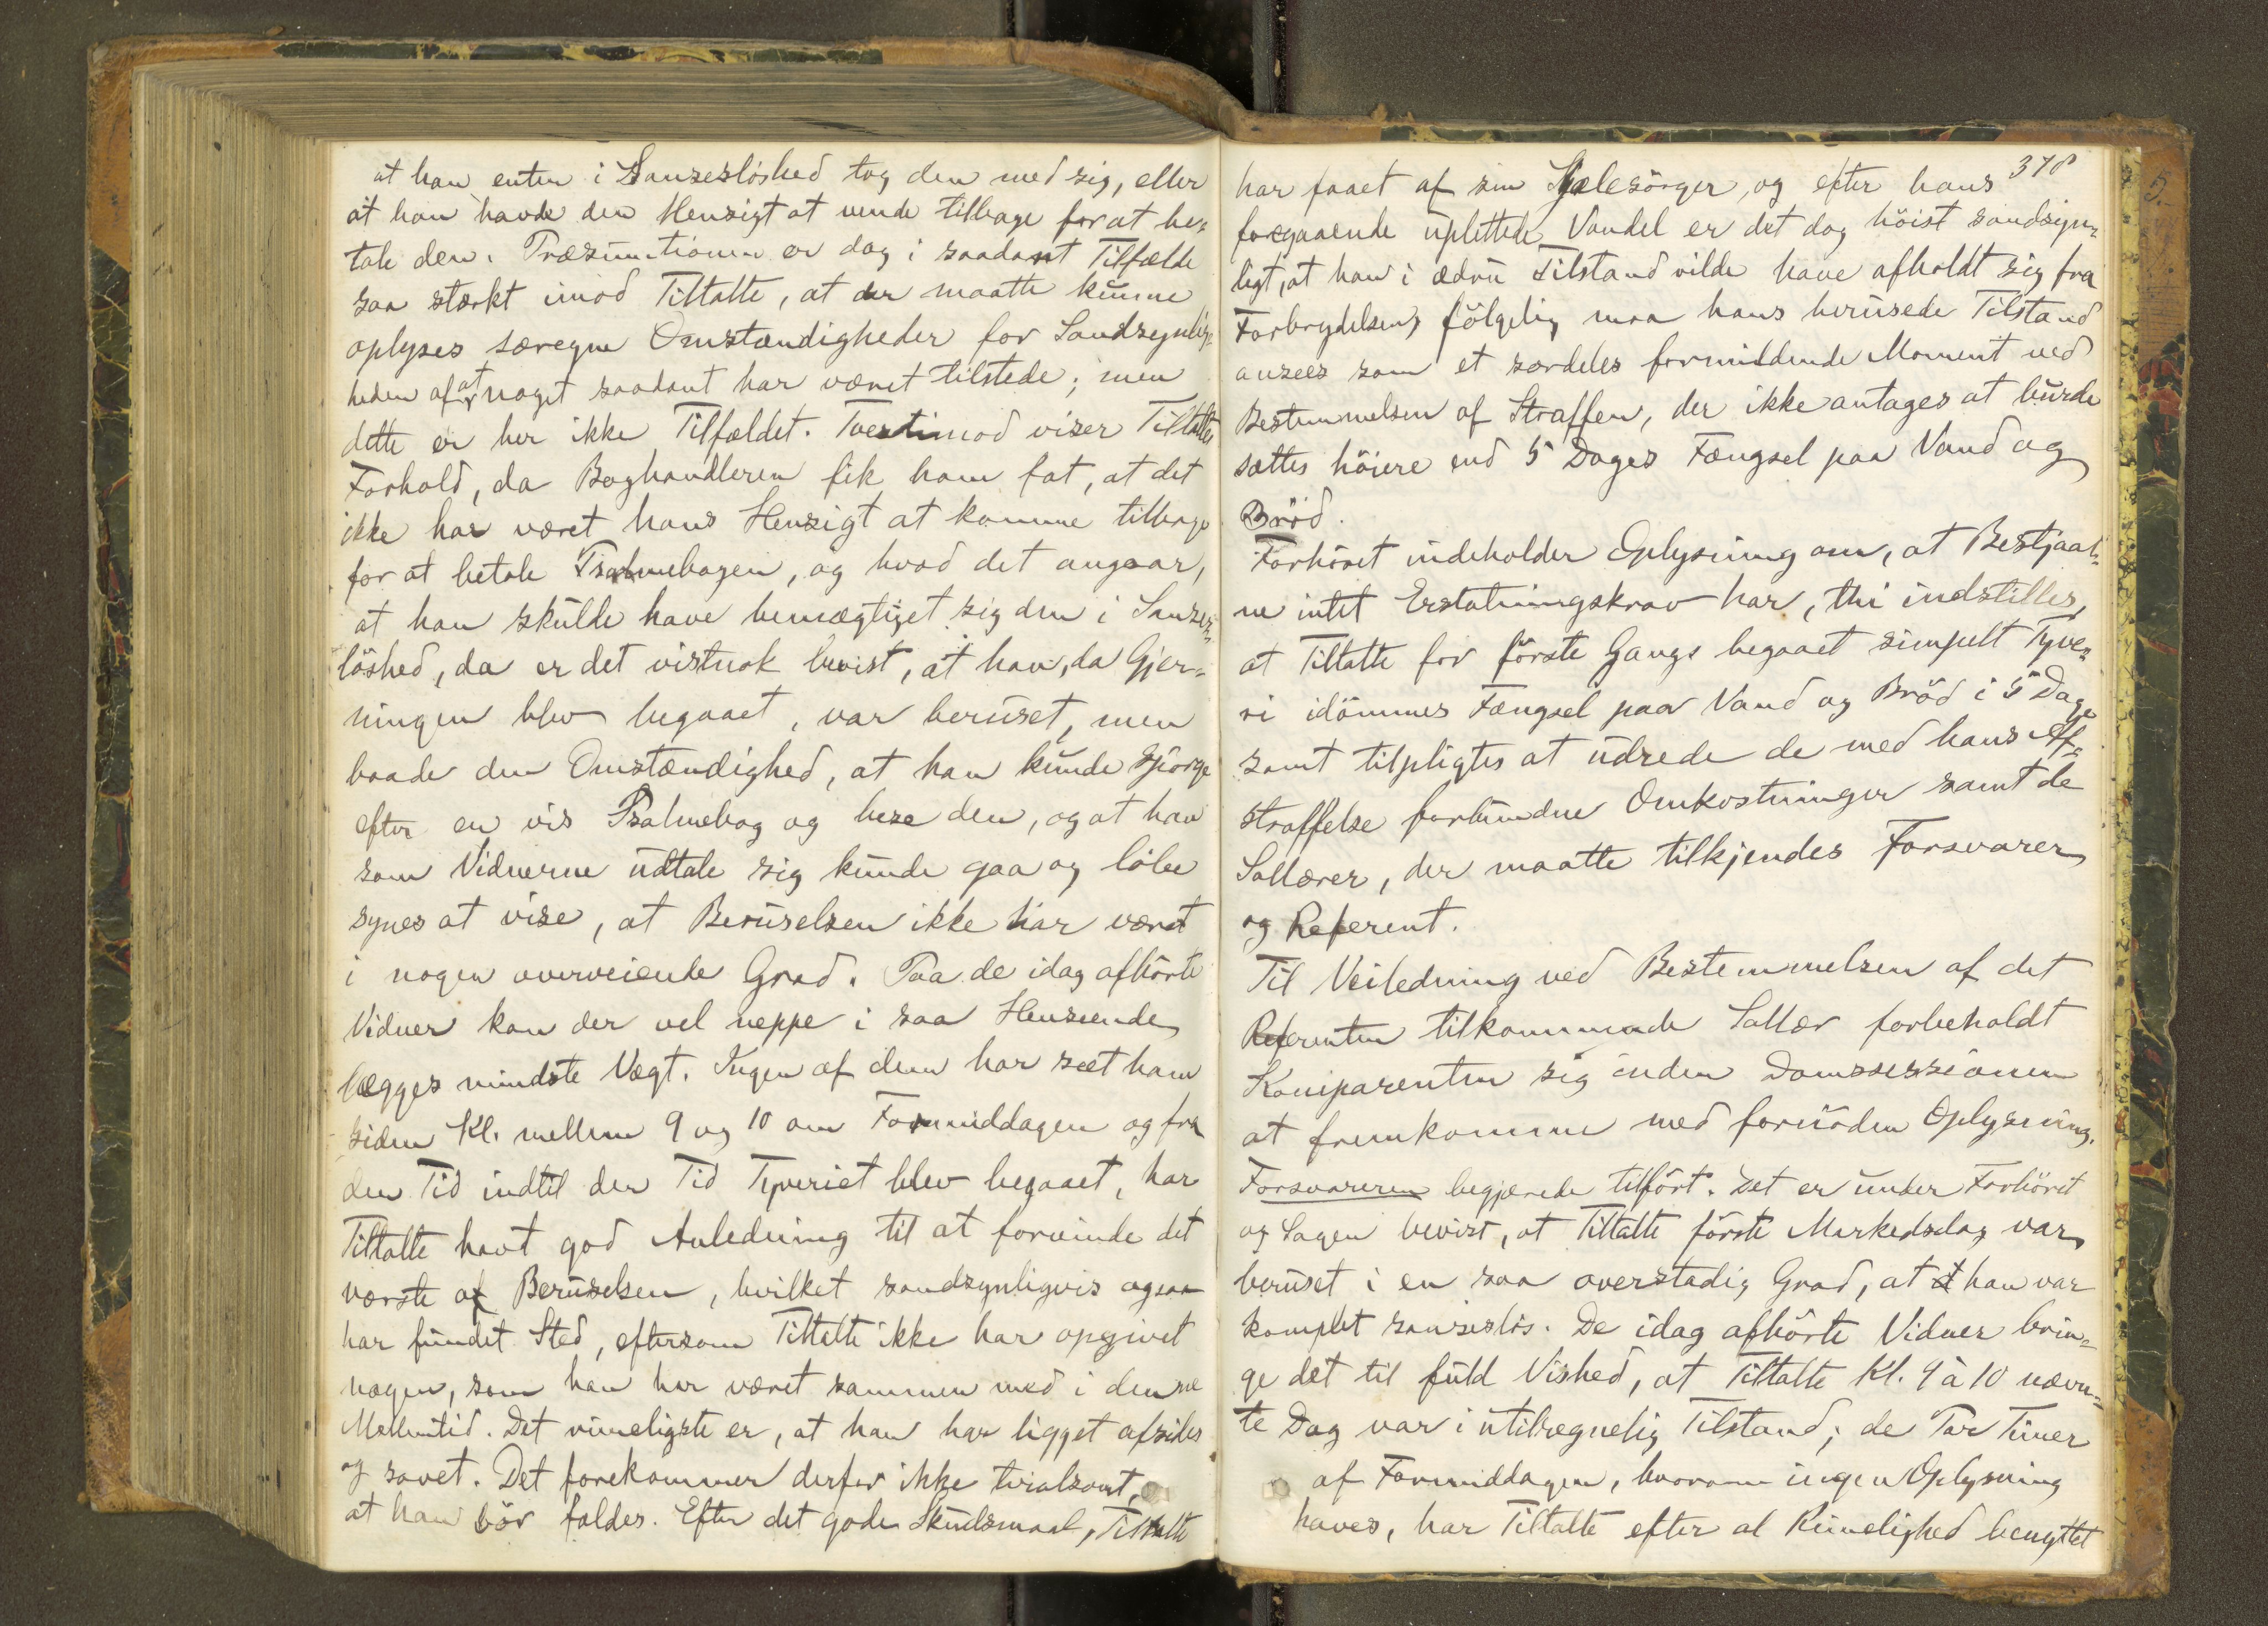 at han enten i Sanseslöshed tog den med sig, eller
at han havde den Hensigt at vende tilbage for at be-
tale den. Præsumtionen er dog i saadant Tilfælde
saa stærkt imod Tiltalte, at der maatte kunne
oplyses særegne Omstændigheder for Sandsynlig-
heden af at noget saadant har været tilstede; men
dette er her ikke Tilfældet. Tvertimod viser Tiltaltes
Forhold, da Boghandleren fik ham fat, at det
ikke har været hans Hensigt at komme tilbage
for at betale Psalmebogen, og hvad det angaar,
at han skulde have bemægtiget sig den i Sanses-
löshed, da er det vistnok bevist, at han, da Gjer-
ningen blev begaaet, var beruset, men
baade den Omstændighed, at han kunde spörge
efter en vis Psalmebog og bese den, og at han
som Vidnerne udtale sig kunde gaa og löbe
synes at vise, at Beruselsen ikke har været
i nogen overveiende Grad. Paa de idag afhörte
Vidner kan der vel neppe i saa Henseende
lægges mindste Vægt. Ingen af dem har seet ham
siden Kl. mellem 9 og 10 om Formiddagen og fra
den Tid indtil den Tid Tyveriet blev begaaet, har
Tiltalte havt god Anledning til at forvinde det
værste af Beruselsen, hvilket sandsynligvis ogsaa
har fundet Sted, eftersom Tiltalte ikke har opgivet
nogen, som han har været sammen med i denne
Mellemtid. Det rimeligste er, at han har ligget afsides
og sovet. Det forekommer derfor ikke tvivlsomt,
at han bör fældes. Efter det gode Skudsmaal, Tiltalte
378
har faaet af sin Sjælesörger, og efter hans
foregaaende uplettede Vandel er det dog höist sandsyn-
ligt, at han i ædru Tilstand vilde have afholdt sig fra
Forbrydelsen, fölgelig maa hans berusede Tilstand
ansees som et særdeles formildende Moment ved
Bestemmelsen af Straffen, der ikke antages at burde
sættes höiere end 5 Dages Fængsel paa Vand og
Bröd.
Forhöret indeholder Oplysning om, at Bestjaal-
ne intet Erstatningskrav har, thi indstilles,
at Tiltalte for förste Gangs begaaet simpelt Tyve-
ri idömmes Fængsel paa Vand og Bröd i 5 Dage
samt tilpligtes at udrede de med hans Af-
straffelse forbundne Omkostninger samt de
Sallærer, der maatte tilkjendes Forsvarer
og Referent.
Til Veiledning ved Bestemmelsen af det
Referenten tilkommende Sallær forbeholdt
Komparenten sig inden Domssessionen
at fremkomme med fornöden Oplysning.
Forsvareren begjærede tilfört. Det er under Forhöret
og Sagen bevist, at Tiltalte förste Markedsdag var
beruset i en saa overstadig Grad, at han var
komplet sanseslös. De idag afhörte Vidner brin-
ge det til fuld Vished, at Tiltalte Kl. 9 à 10 nævn-
te Dag var i utilregnelig Tilstand; de Par Timer
af Formiddagen, hvorom ingen Oplysning
haves, har Tiltalte efter al Rimelighed benyttet